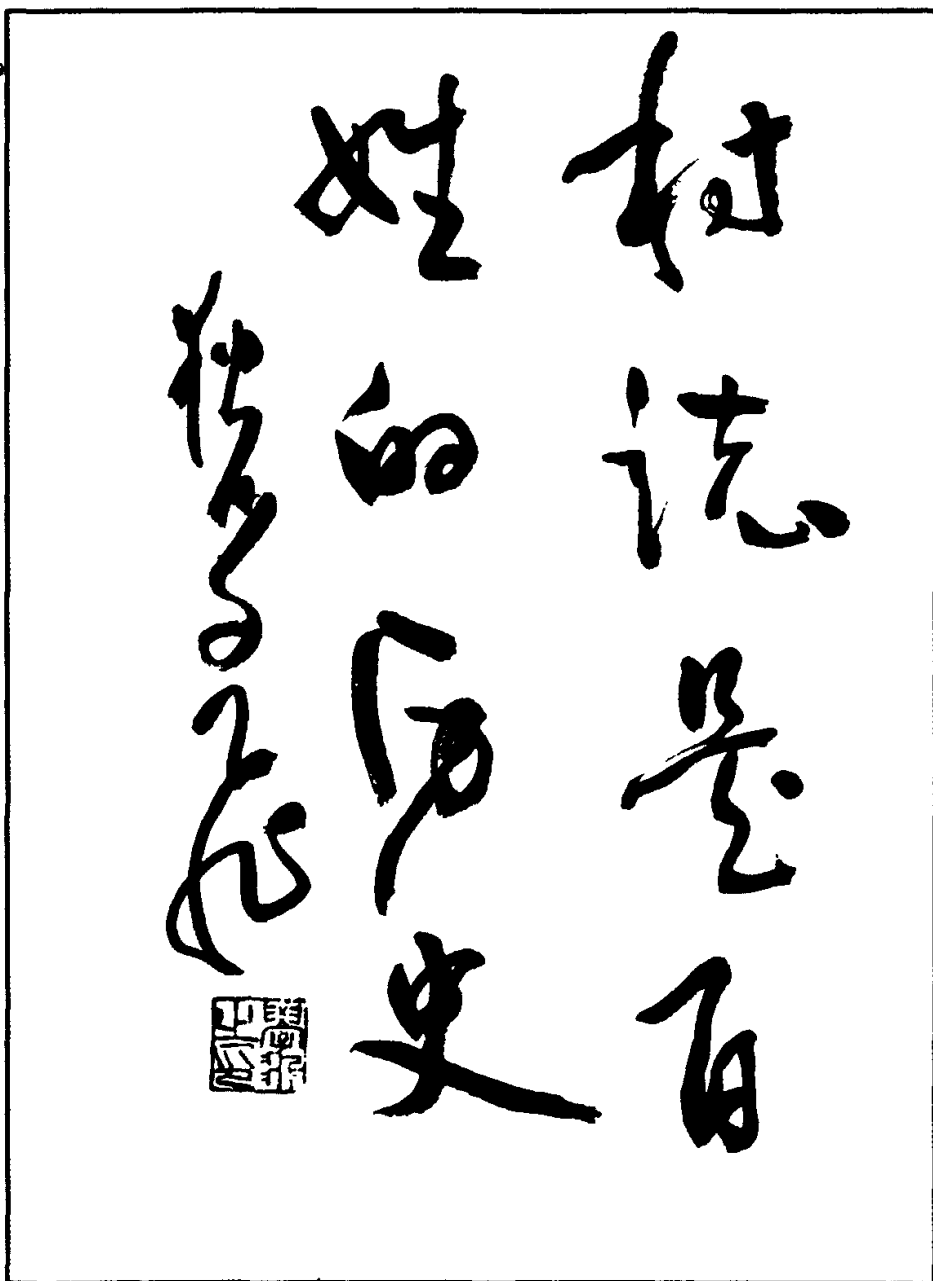 村誌是百
姓的历史